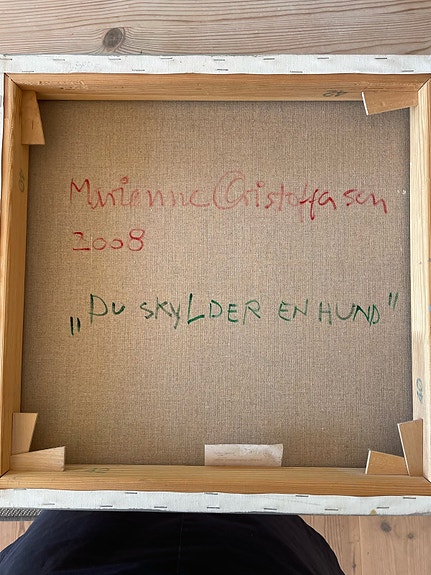 Marianne Cristoffasen
2008
„DU SKYLDER EN HUND"
40